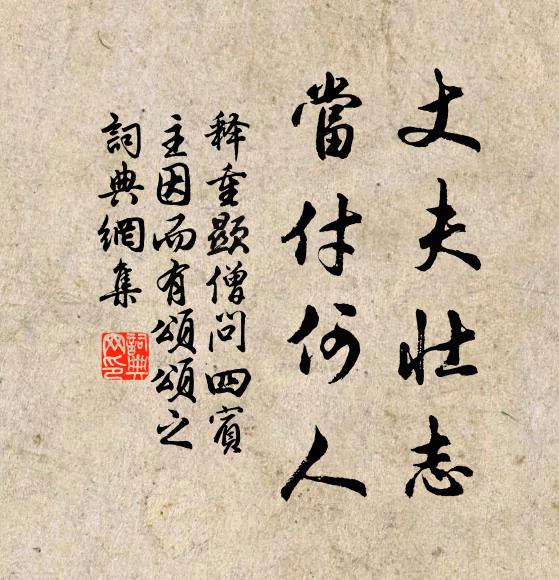 丈夫壮志
當付何人
释重顯僧問四賓
主因而有頌頌之
詞典網集
詞典
网印